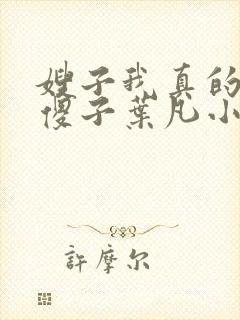 嫂子我真的
傻子葉凡小
許摩尔